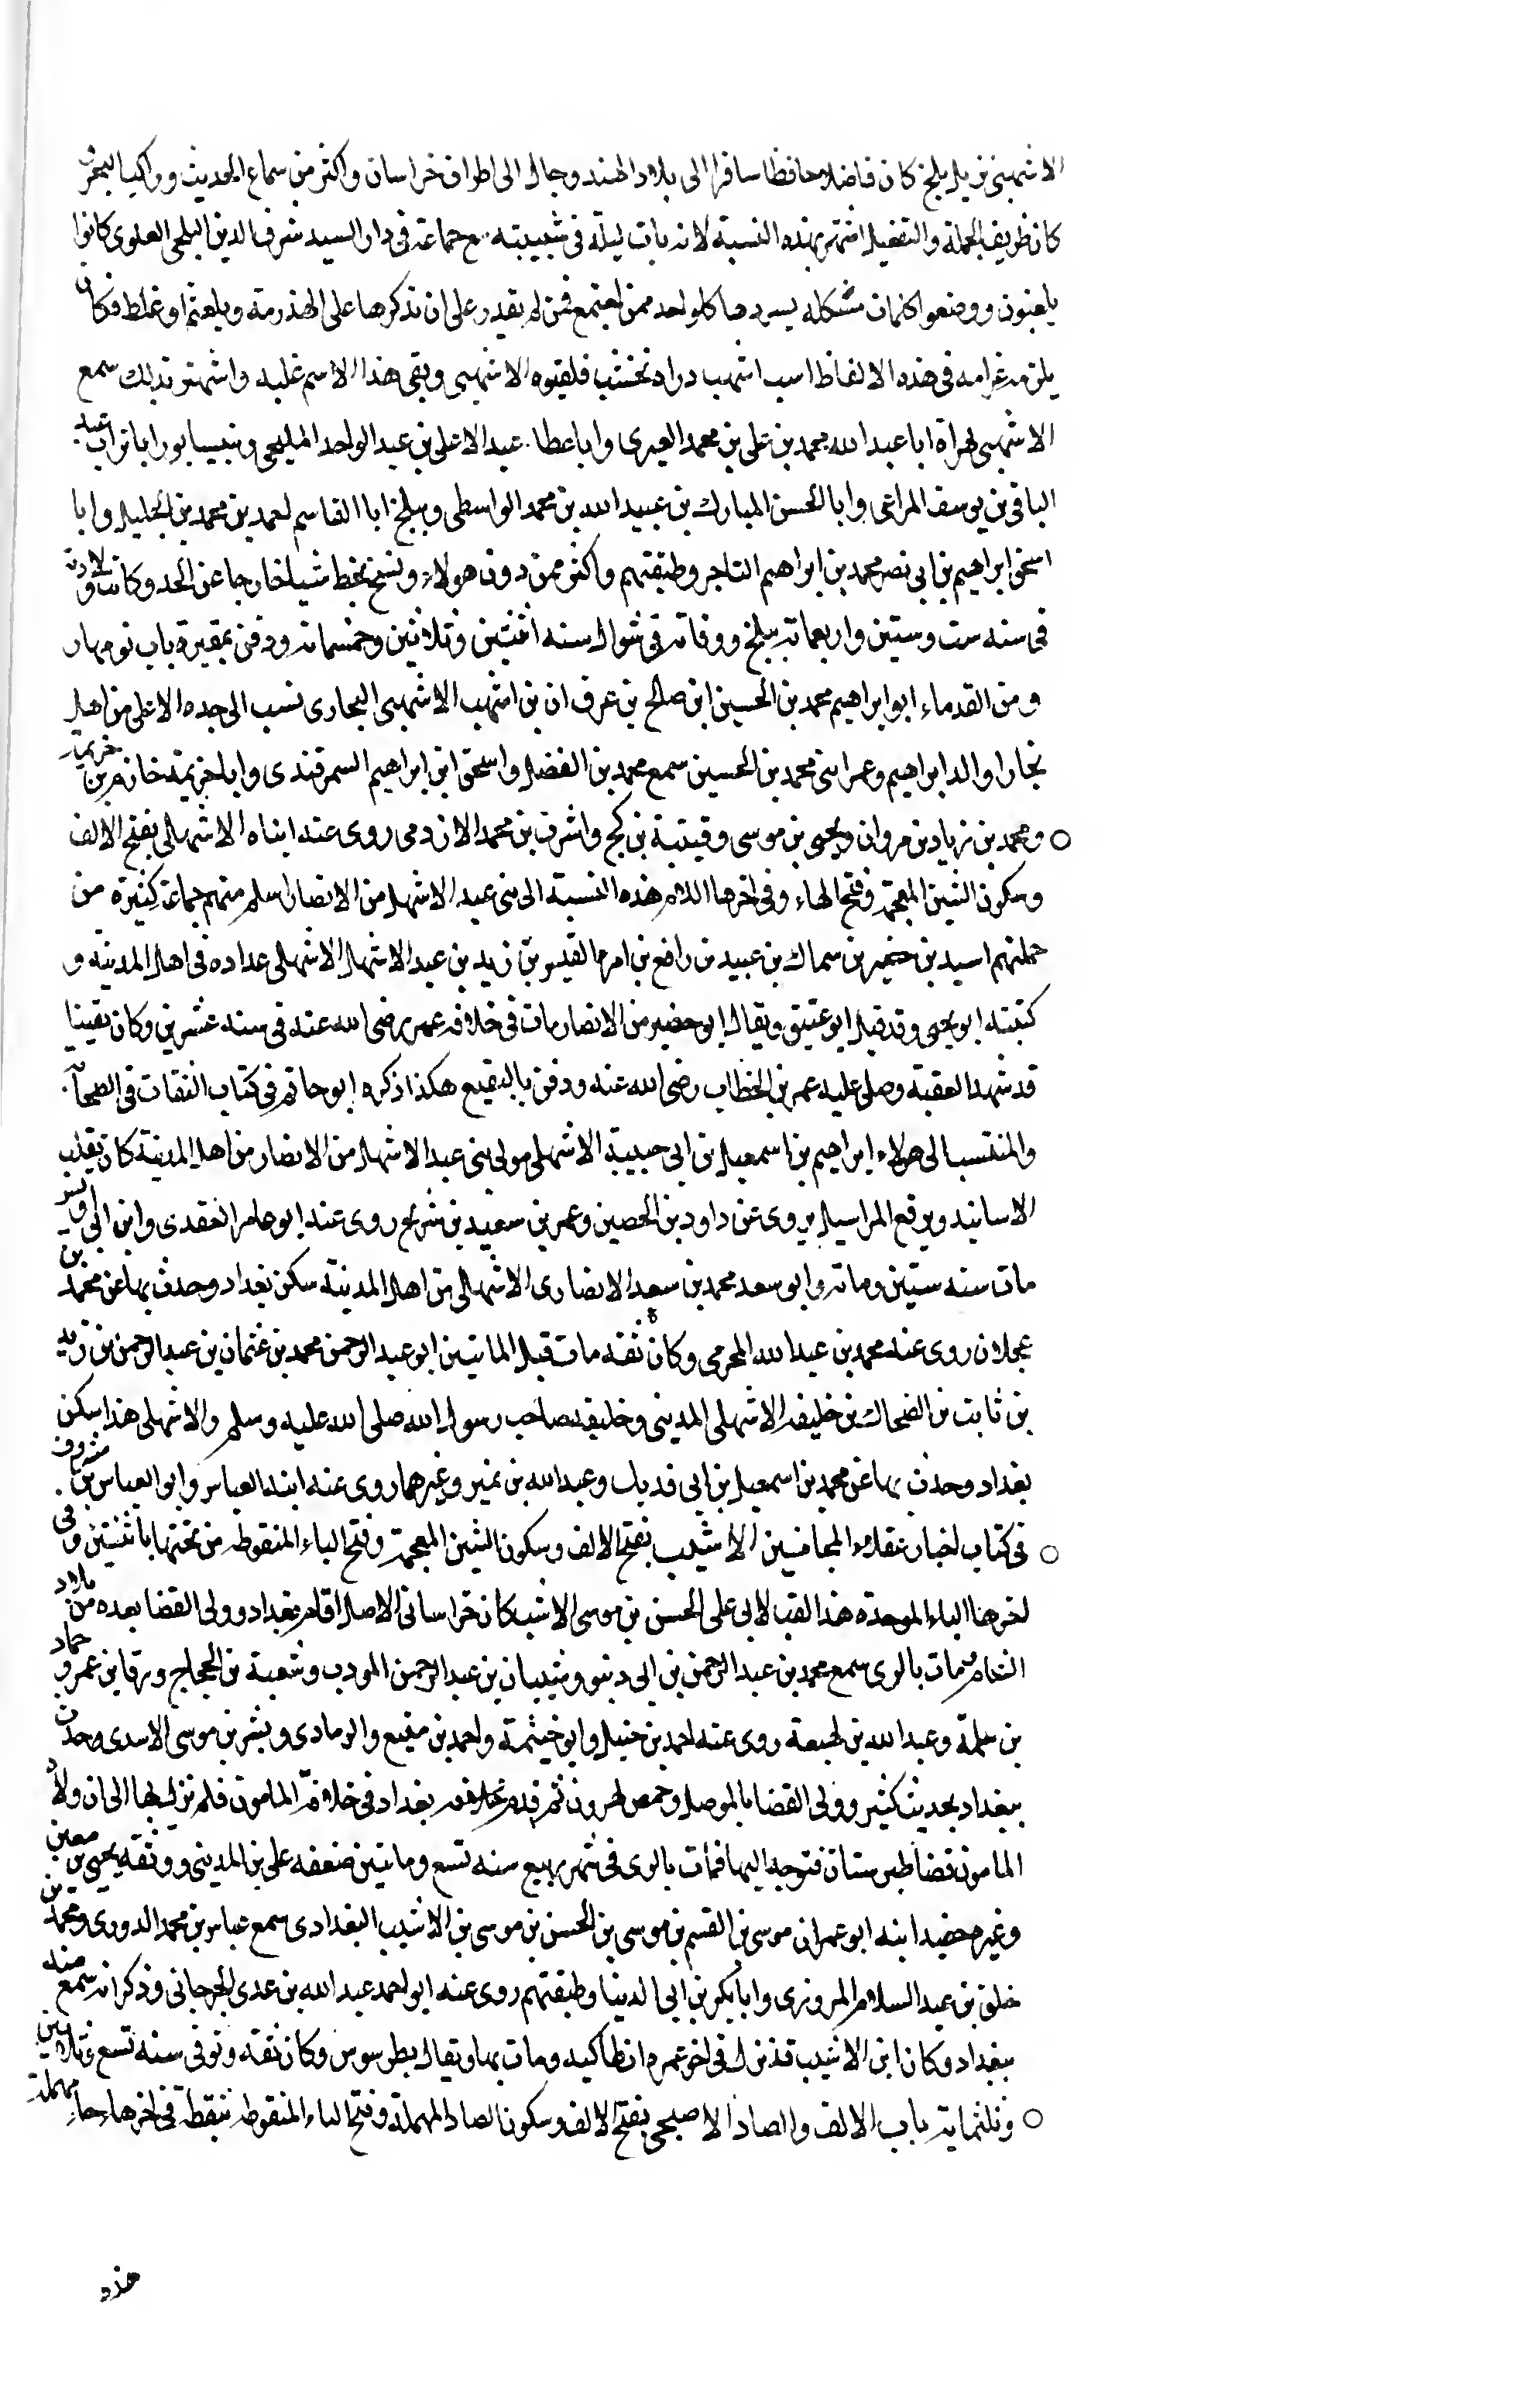 الاشهبى نزيل بلخ كان فاضلا حافظا سافر الى بلاد الهند وجال الى اطراف خراسان واكثر من سماع الحديث وراكبا البحر
كان ظريف الجملة والتفصيل اشتهر بهذه النسبة لانه بات ليلة فى شبيبته مع جماعة فى دار السيد شرف الدين البلخى العلوى كانوا
يلعبون ووضعوا كلمات مشكله يسردها كل واحد ممن اجتمع فمن لم يقدر على ان يذكرها على الهذرمة ويلعثم او غلط فكان
يلزمه غرامه فى هذه الالفاظ اسب اشهب دراه نخشب فلقبوه الاشهبى وبقى هذا الاسم عليه واشتهر بذلك سمع
الاشهبى بهراة ابا عبد الله محمد بن على بن محمد العميرى وابا عطا عبد الاعلى بن عبد الواحد المليحى وبنيسابور ابا تراب عبد
الباقى بن يوسف المراغى وابا الحسن المبارك بن عبيد الله بن محمد الواسطى وببلخ ابا القاسم احمد بن محمد بن الخليل وابا
اسحق ابراهيم بن ابى نصر محمد بن ابراهيم التاجر وطبقتهم واكثر ممن دون هولاء ونسخ بخط شيا خارجا عن الحد وكانت ولادته
فى سنه ست وستين واربعمائه ببلخ ووفاته فى شوال سنه اثنتين وثلاثين وخمسمائه ودفن بمقبرة باب نوبهار
ومن القدماء ابو ابراهيم محمد بن الحسين ابن صالح بن عرف ان بن اشهب الاشهبى البخارى نسب الى جده الاعلى من اهل
بخارا والد ابراهيم وعمر ابنى محمد بن الحسين سمع محمد بن الفضل واسحق ابن ابراهيم السمرقندى وابا خزيمة خازم بن خزيمه
ومحمد بن زياد بن مروان ويحيى بن موسى وقتيبة بن كج واشرف بن محمد الازدمى روى عنه ابناه الاشهلى بفتح الالف
وسكون الشين المعجمة وفتح الهاء وفى اخرها اللام هذه النسبة الى بنى عبد الاشهل من الانصار اسلم منهم جماعة كثيرة من
جملتهم اسيد بن حضير بن سماك بن عبيد بن رافع بن امرء القيس بن زيد بن عبد الاشهل الاشهلى عداده فى اهل المدينه و
كنيته ابو يحيى وقد قيل ابو عتيق ويقال ابو حضير من الانصار مات فى خلافه عمر رضى الله عنه فى سنه عشرين وكان نقيبا
قد شهد العقبة وصلى عليه عمر بن الخطاب رضى الله عنه ودفن بالبقيع هكذا ذكره ابو حاتم فى كتاب الثقات فى الصحابة
والمنتسب الى هولاء ابراهيم بن اسمعيل بن ابى حبيبة الاشهلى مولى بنى عبد الاشهل من الانصار من اهل المدينة كان يقلب
الاسانيد ويرفع المراسيل يروى عن داود بن الحصين وعمر بن سعيد بن شريح روى عنه ابو عامر العقدى وابن ابى اويس
مات سنه ستين ومائه وابو سعد محمد بن سعد الانصارى الاشهلى من اهل المدينة سكن بغداد وحدث بها عن محمد بن
عجلان روى عنه محمد بن عبد الله المخرمى وكان ثقه مات قبل المائتين ابو عبد الرحمن محمد بن عثمان بن عبد الرحمن بن زيد
بن ثابت بن الضحاك بن خليفه الاشهلى المدينى وخليفه صاحب رسول الله صلى الله عليه وسلم والاشهلى هذا سكن
بغداد وحدث بها عن محمد بن اسمعيل بن ابى فديك وعبد الله بن نمير وغيرهما روى عنه ابنه العباس وابو العباس بن مسروف
فى كتاب اخبار عقلاء المجانين الاشيب بفتح الالف وسكون الشين المعجمة وفتح الياء المنقوطه من تحتها باثنتين وفى
اخرها الباء الموحدة هذا لقب لابى على الحسن بن موسى الاشيب كان خراسانى الاصل اقام ببغداد وولى القضا بعده من بلاد
الشام ومات بالرى سمع محمد بن عبد الرحمن بن ابى دنبو وشيبان بن عبد الرحمن المودب وشعبة بن الحجاج وورقا بن عمر وحماد
بن سلمة وعبد الله بن لهيعة روى عنه احمد بن حنبل وابو خيثمة واحمد بن منيع والرمادى وبشر بن موسى الاسدى وحدث
ببغداد بحديث كثير وولى القضا بالموصل وحمص لهرون ثم قدم بغداد فى خلافة المامون فلم يزل بها الى ان ولاه
المامون قضا طبرستان فتوجه اليها فمات بالرى فى شهر ربيع سنه تسع ومائتين ضعفه على بن المدينى ووثقه يحيى بن معين
وغيره حفيد ابنه ابو عمران موسى بن القسم بن موسى بن الحسن بن موسى بن الاشيب البغدادى سمع عباس بن محمد الدورى ومحمد بن
خلف بن عبد السلام المروزى وابا بكر بن ابى الدنيا وطبقتهم روى عنه ابو احمد عبد الله بن عدى الجرجانى وذكر انه سمع منه
ببغداد وكان ابن الاشيب قد نزل فى اخر عمره انطاكيه ومات بها ويقال بطرسوس وكان ثقه وتوفى سنه تسع وثلاثين
وثلثمايه باب الالف والصاد الاصبحى بفتح الالف وسكون الصاد المهملة وفتح الباء المنقوطه بنقطة فى اخرها حاء مهملة
هذه